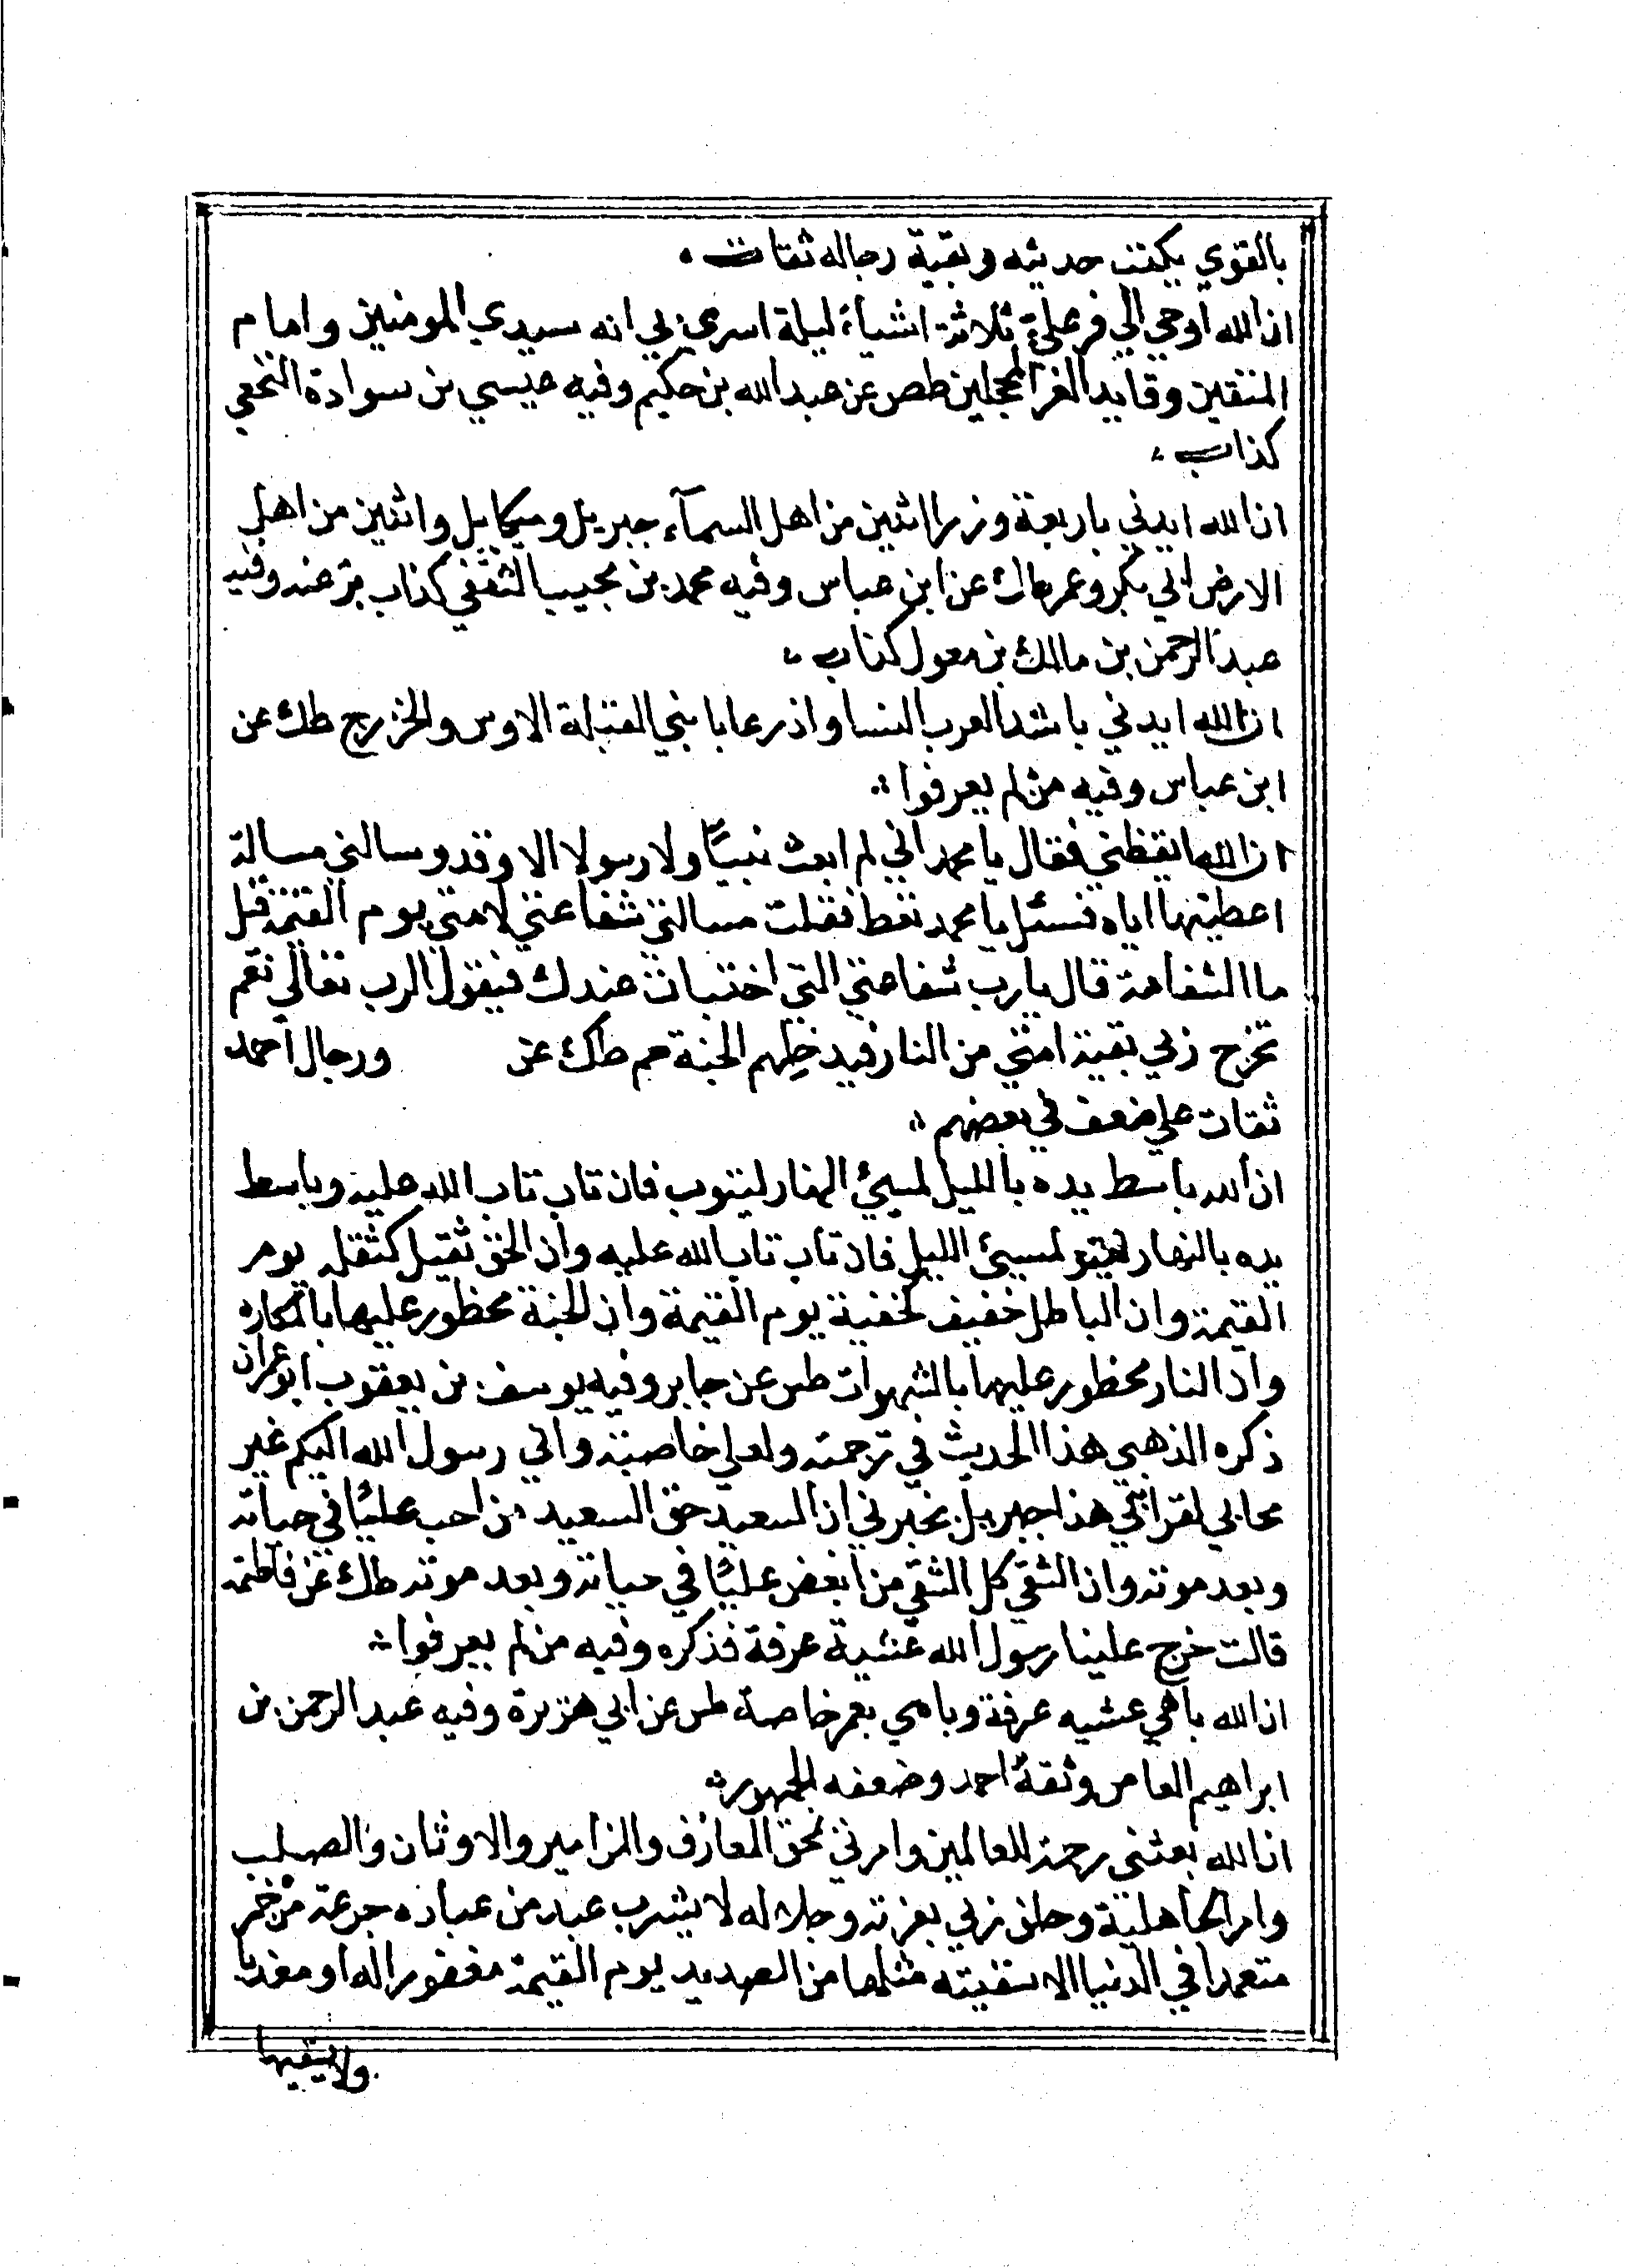 بالقوي يكتب حديثه وبقية رجاله ثقات
ان الله اوحي الي في علي ثلاثة اشياء ليلة اسري بي انه سيدي المومنين وامام
المتقين وقايد الغر المحجلين طص عن عبد الله بن حكيم وفيه عيسي بن سوادة النخعي
كذاب
ان الله ايدني باربعة وزرا اثنين من اهل السمآء جبريل وميكايل واثنين من اهل
الارض ابي بكر وعمر طك عن ابن عباس وفيه محمد بن مجيب الثقفي كذاب بز عنه وفيه
عبد الرحمن بن مالك بن معول كذاب
ان الله ايدني باشد العرب السنا واذرعا بابني القيلة الاوس والخزرج طك عن
ابن عباس وفيه من لم يعرفوا
ان الله ايقظني فقال يا محمد اني لم ابعث نبيًا ولا رسولا الا وقد وسالني مسالة
اعطيتها اياه فسئل يا محمد تعط فقلت مسالتي شفاعتي لامتي يوم القيمة قيل
ما الشفاعة قال يارب شفاعتي التي اختبات عندك فيقول الرب تعالي نعم
تخرج زبي بقية امتي من النار فيدخلهم الجنة حم طك عن ورجال احمد
ثقات علي ضعف في بعضهم
ان الله باسط يده بالليل لمسيئ النهار ليتوب فان تاب تاب الله عليه وباسط
يده بالنهار لمسيئ الليل فان تاب تاب الله عليه وان الحق ثقيل كثقله يوم
القيمة وان الباطل خفيف كخفية يوم القيمة وان الجنة محظور عليها بالمكاره
وان النار محظور عليها بالشهوات طس عن جابر وفيه يوسف بن يعقوب ابو عمران
ذكره الذهبي هذا الحديث في ترجمته ولعلي خاصته واني رسول الله اليكم غير
محابي لقرابتي هذا جبريل يخبرني ان السعيد حق السعيد من احب عليًا في حياته
وبعد موته وان الشقي كل الشقي من ابغض عليًا في حياته وبعد موته طك عن فاطمه
قالت خرج علينا رسول الله عشية عرفة فذكره وفيه من لم يعرفوا
ان الله باهي عشيه عرفة وباهي بعمر خاصة طس عن ابي هريرة وفيه عبد الرحمن بن
ابراهيم العاص وثقة احمد وضعفه الجمهور
ان الله بعثني رحمة للعالمين وامرني بمحق المعازف والمزامير والاوثان والصلب
وامر الجاهلية وحلف زبي بعزته وجلاله لا يشرب عبد من عباده جرعة من خمر
متعمدا في الدنيا الا سقيته مثلها من الصديد يوم القيمة مغفورا له او معذبا
ولا يسقيها